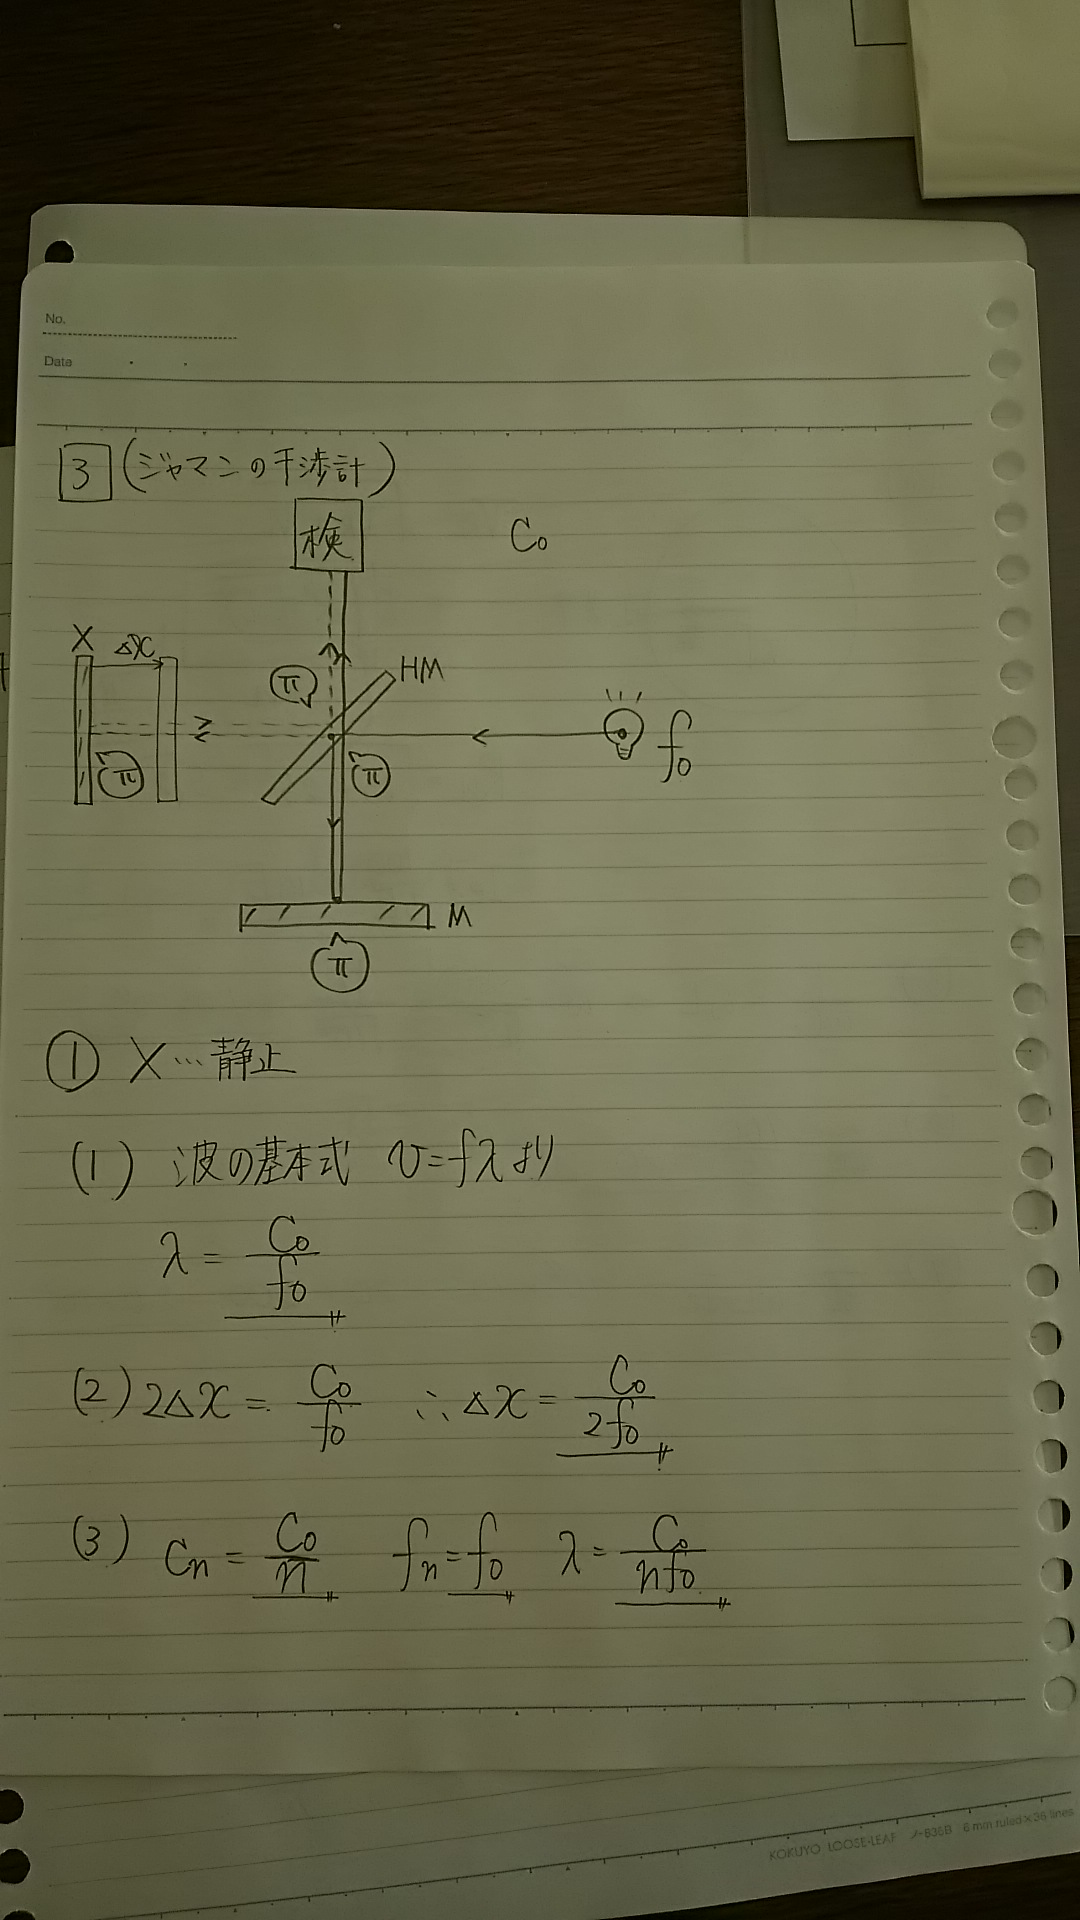 No.
Date
3 (ジャマンの干渉計)
検
C₀
X Δx
π
HM
π
π
f₀
M
π
① X…静止
(1) 波の基本式 v=fλより
λ = C₀/f₀
(2) 2Δx = C₀/f₀ ∴Δx = C₀/2f₀
(3) Cn = C₀/n fn=f₀ λ= C₀/nf₀
KOKUYO LOOSE-LEAF ノ-836B 6 mm ruled×36 lines